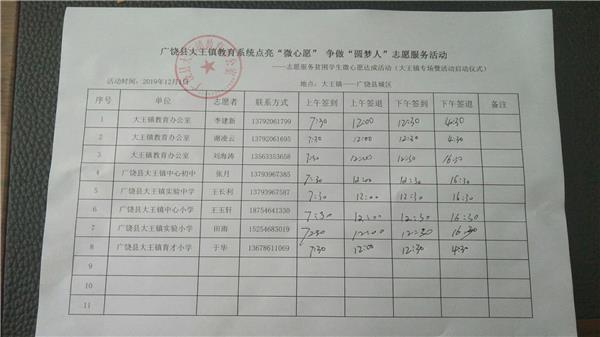 广饶县大王镇教育系统点亮“微心愿” 争做“圆梦人”志愿服务活动
——志愿服务贫困学生微心愿达成活动（大王镇专场暨活动启动仪式）
活动时间：2019年12月1日 地点：大王镇——广饶县城区
序号 单位 志愿者 联系方式 上午签到 上午签退 下午签到 下午签退 备注
1 大王镇教育办公室 李建新 13792061799 7:30 12:00 12:30 4:30
2 大王镇教育办公室 谢凌云 13792061695 7:30 12:00 12:30 4:30
3 大王镇教育办公室 刘海涛 13563353658 7:30 12:00 12:30 16:30
4 广饶县大王镇中心初中 张月 13793967385 7:30 12:00 12:30 16:30
5 广饶县大王镇实验中学 王长利 13793967587 7:30 12:00 12:30 16:30
6 广饶县大王镇中心小学 王玉轩 18754641330 7:30 12:00 12:30 16:30
7 广饶县大王镇实验小学 田雨 15254683019 7:30 12:00 12:30 16:30
8 广饶县大王镇育才小学 于华 13678611069 7:30 12:00 12:30 4:30
9
10
11